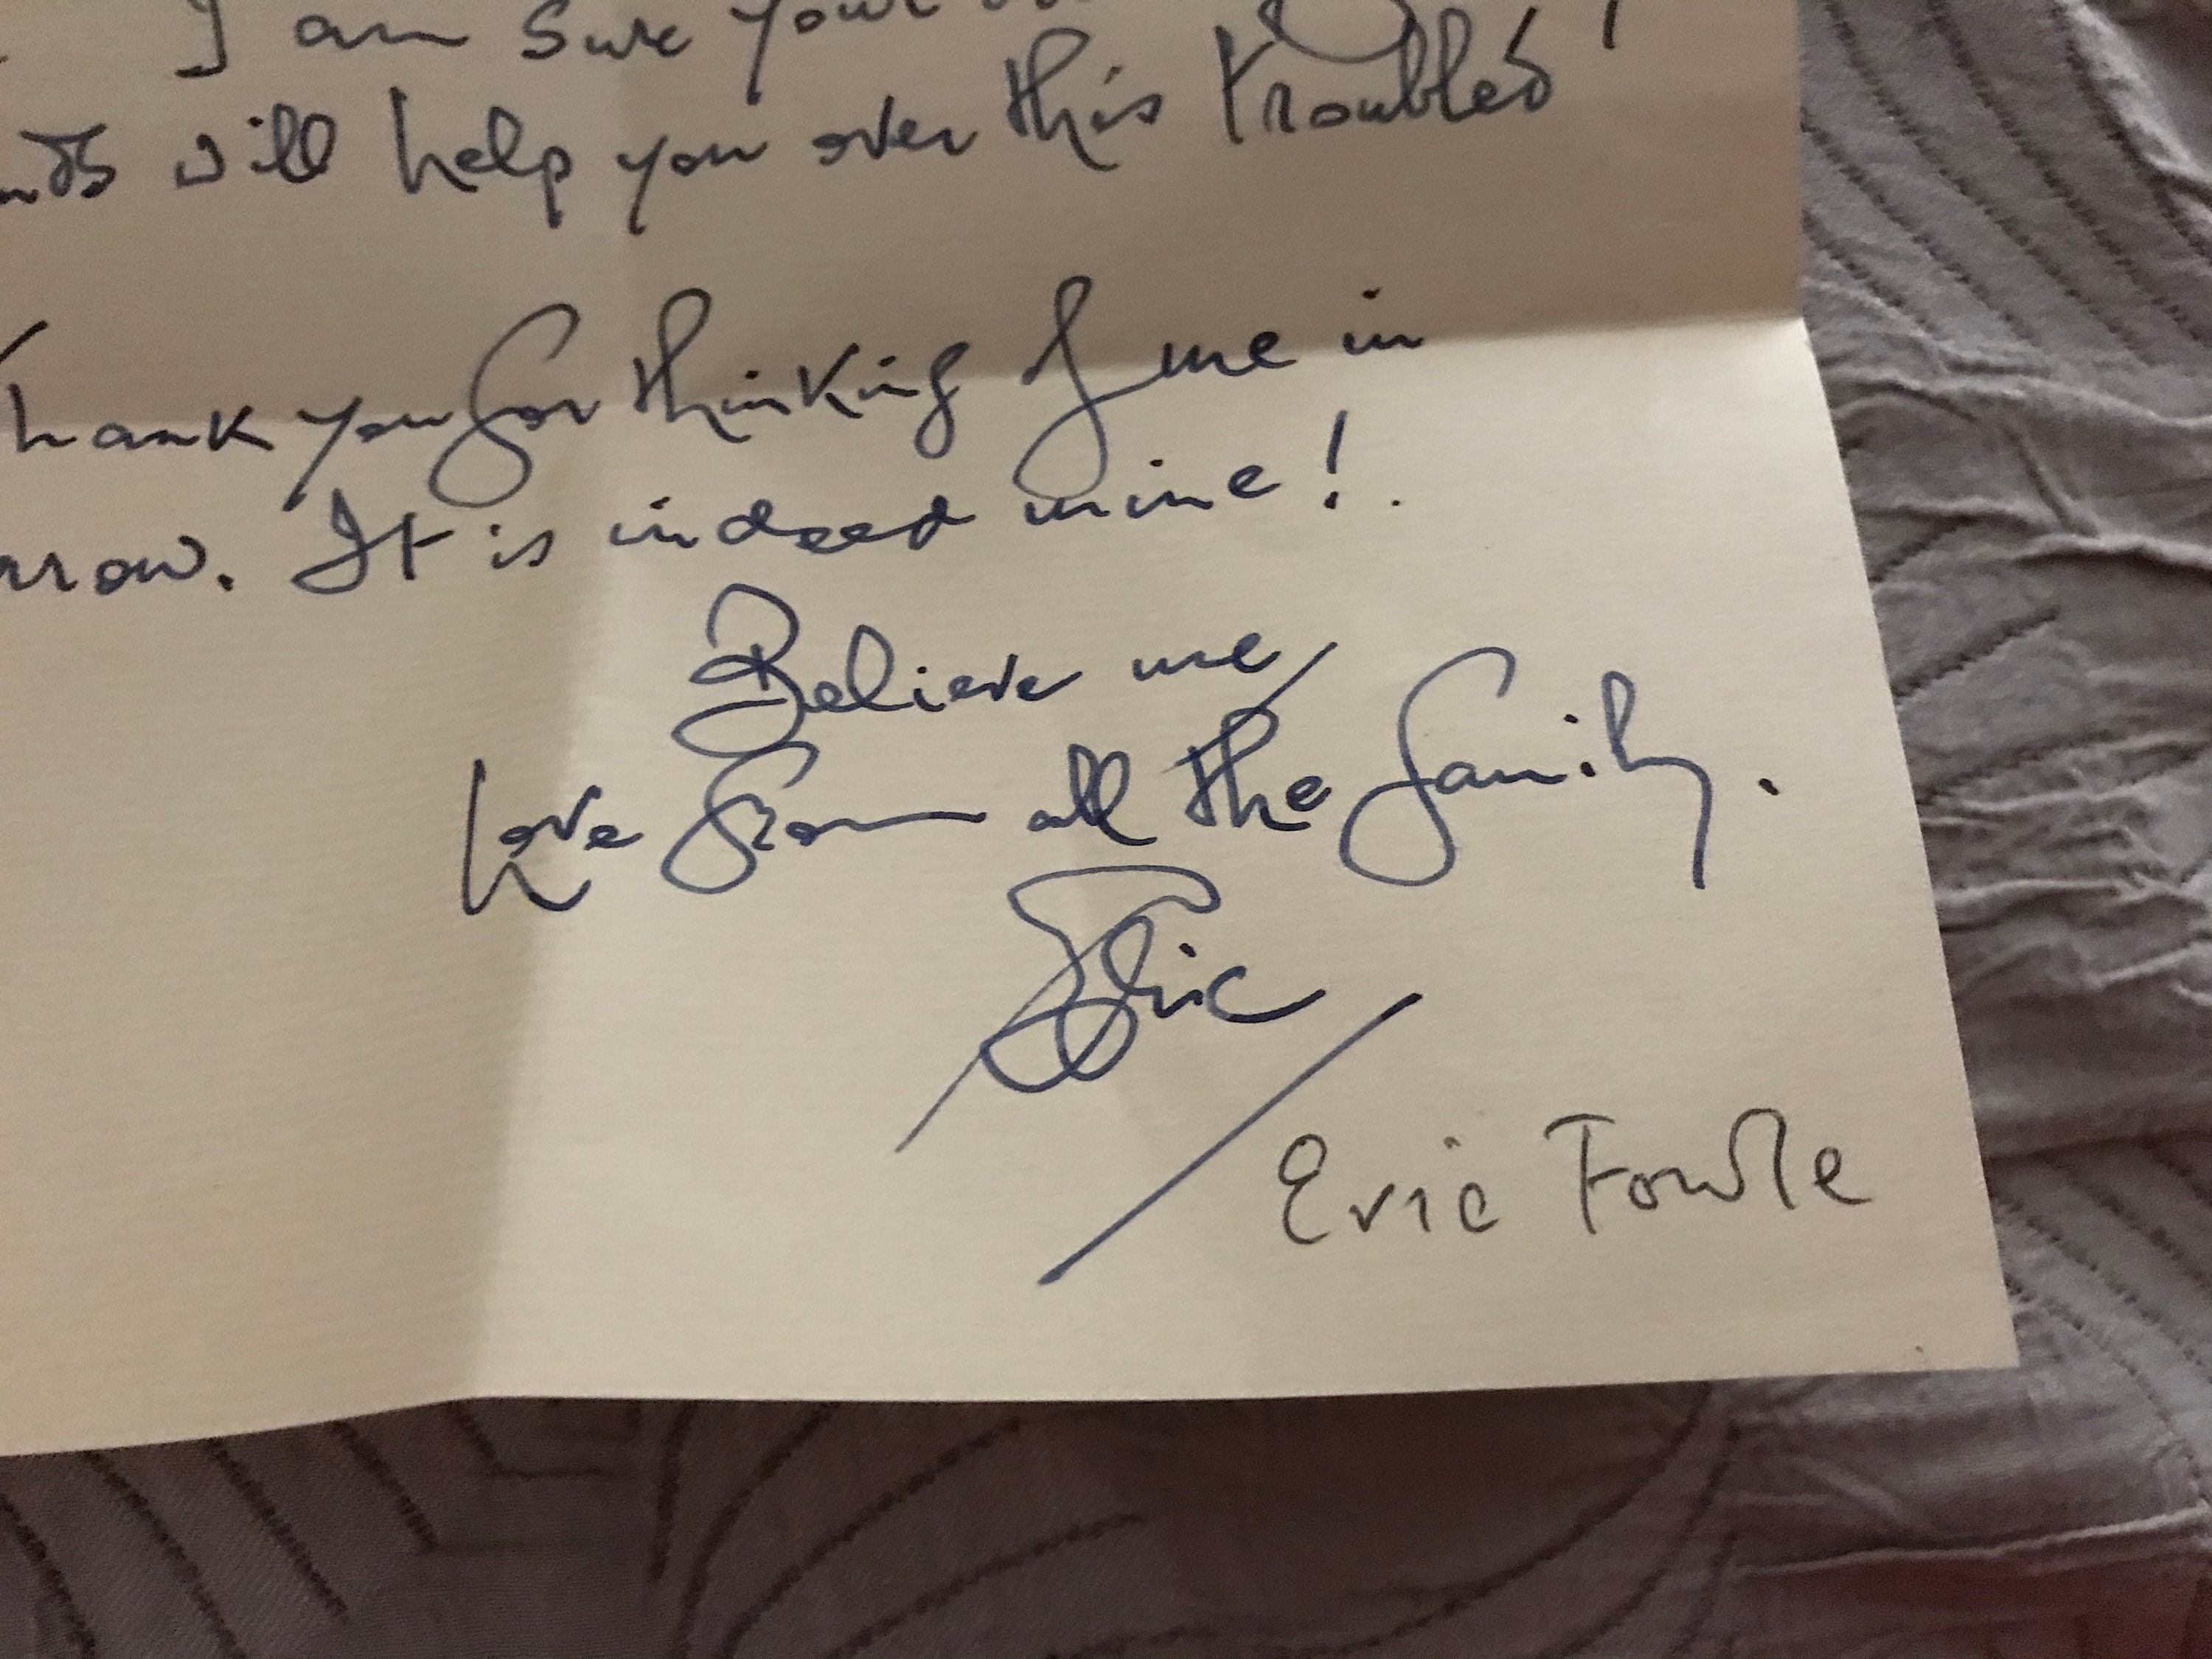 I am sure your
will help you over this troubled
Thank you for thinking of me in
. It is indeed mine!.
Believe me
Love from all the family.
Eric
Eric Fowle